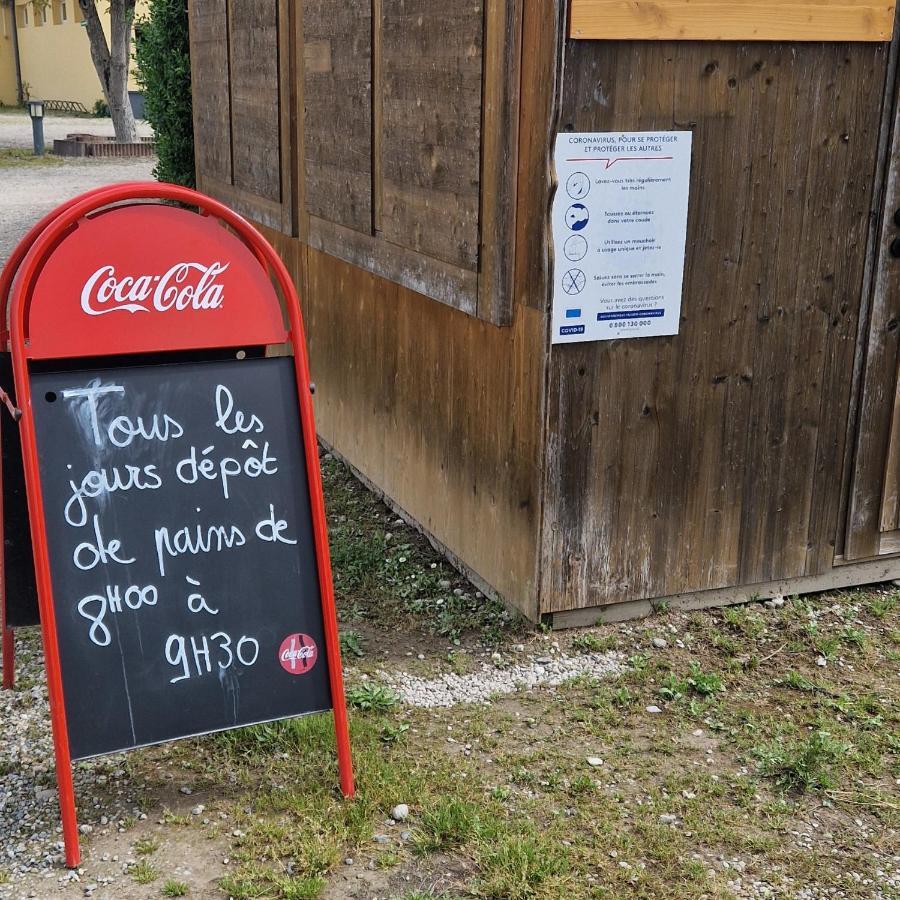 Coca-Cola
Tous les
jours dépôt
de pains de
8H00 à
9H30
Coca-Cola
CORONAVIRUS, POUR SE PROTÉGER
ET PROTÉGER LES AUTRES
Lavez-vous très régulièrement
les mains
Toussez ou éternuez
dans votre coude
Utilisez un mouchoir
à usage unique et jetez-le
Saluez sans se serrer la main,
éviter les embrassades
Vous avez des questions
sur le coronavirus ?
COVID-19
0 800 130 000